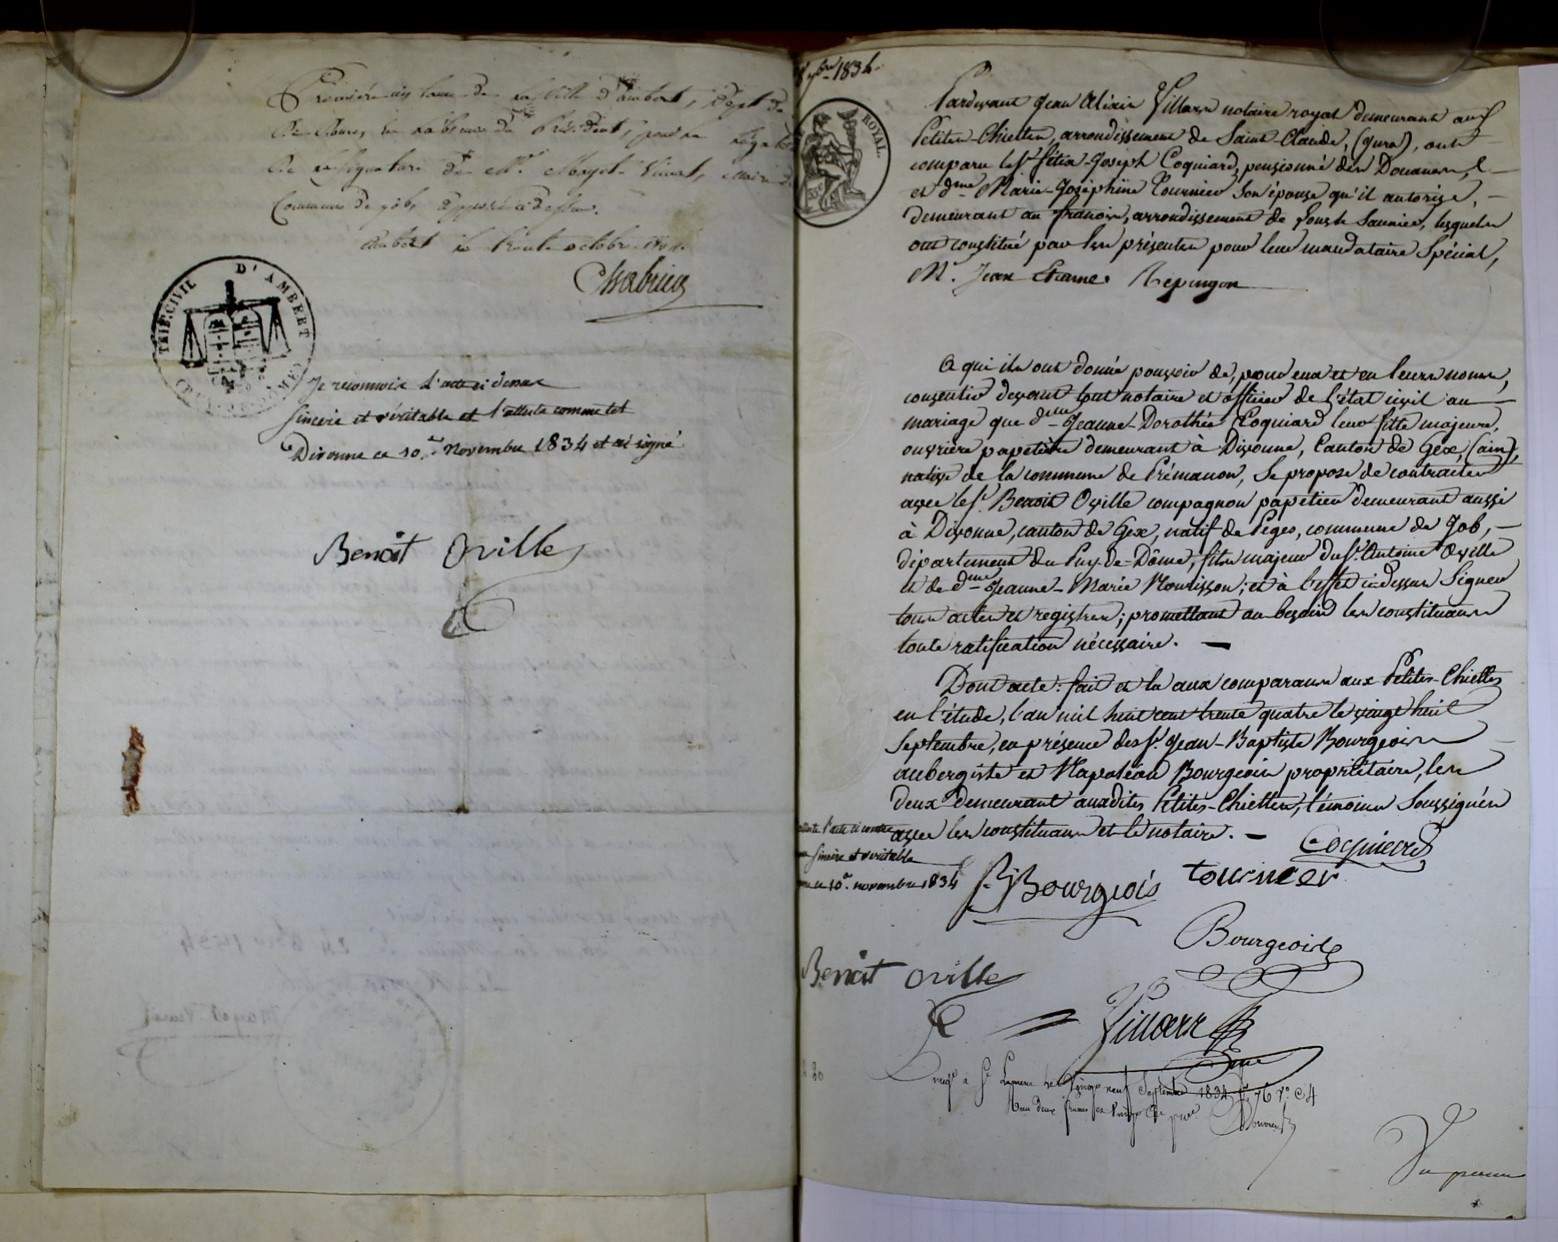 Première instance de la ville d'Ambert, Dépt du
Puy de Dôme, en l'absence du Président, pour la légalisation
de la signature de Mr. Mayet Vimal, Maire de la
Commune de Job, apposée ci dessus.
Ambert le trente octobre 1834.
Chabrier
TRIB. CIVIL D'AMBERT
Je reconnois l'acte ci dessus
sincère et véritable et l'atteste comme tel
Divonne ce 10e. Novembre 1834 et ai signé
Benoit Oville
7bre 1834
ROYAL.
Pardevant Jean Alexis Villard notaire royal demeurant aux
Petites-Chiettes, arrondissement de Saint-Claude, (Jura), ont
comparu le Sr. Félix-Joseph Coquiard, pensionné des Douanes, —
et dme. Marie-Joséphine Tournier son épouse qu'il autorise, —
demeurant au francois, arrondissement de Lons le Saunier, lesquels
ont constitué par les présentes pour leur mandataire Spécial,
Mr. Jean Etienne Repingon
A qui ils ont donné pouvoir de, pour eux et en leurs noms,
consentir devant tout notaire et officier de l'état civil au —
mariage que dlle. Jeanne-Dorothée Coquiard leur fille majeure,
ouvrière papetière demeurant à Divonne, Canton de Gex, (ain),
native de la commune de Prémanon, se propose de contracter
avec le Sr. Benoit Oville compagnon papetier demeurant aussi
à Divonne, canton de Gex, natif de Pégos, commune de Job, —
département du Puy-de-Dôme, fils majeur du Sr. Antoine Oville
et de dme. Jeanne-Marie Nourisson; et à l'effet ci-dessus signer
tous actes et registres; promettant au besoin les constituans
toute ratification nécessaire. —
Dont acte: fait et lu aux comparans aux Petites-Chiettes
en l'étude, l'an mil huit cent trente quatre le vingt huit
Septembre, en présence des Sr. Jean-Baptiste Bourgeois
aubergiste et Napoléon Bourgeois propriétaire, les
deux demeurant auxdites Petites-Chiettes, témoins soussignés
avec les constituans et le notaire. —
Coquiard
atteste l'acte ci contre
sincère et véritable
ce 10e. novembre 1834
Bourgeois
tournier
Bourgeois
Benoit Oville
Villard
Enregé. à St. Laurent le vingt neuf Septembre 1834 fo. 76 vo. c 4
Reçu deux francs et vingt ce